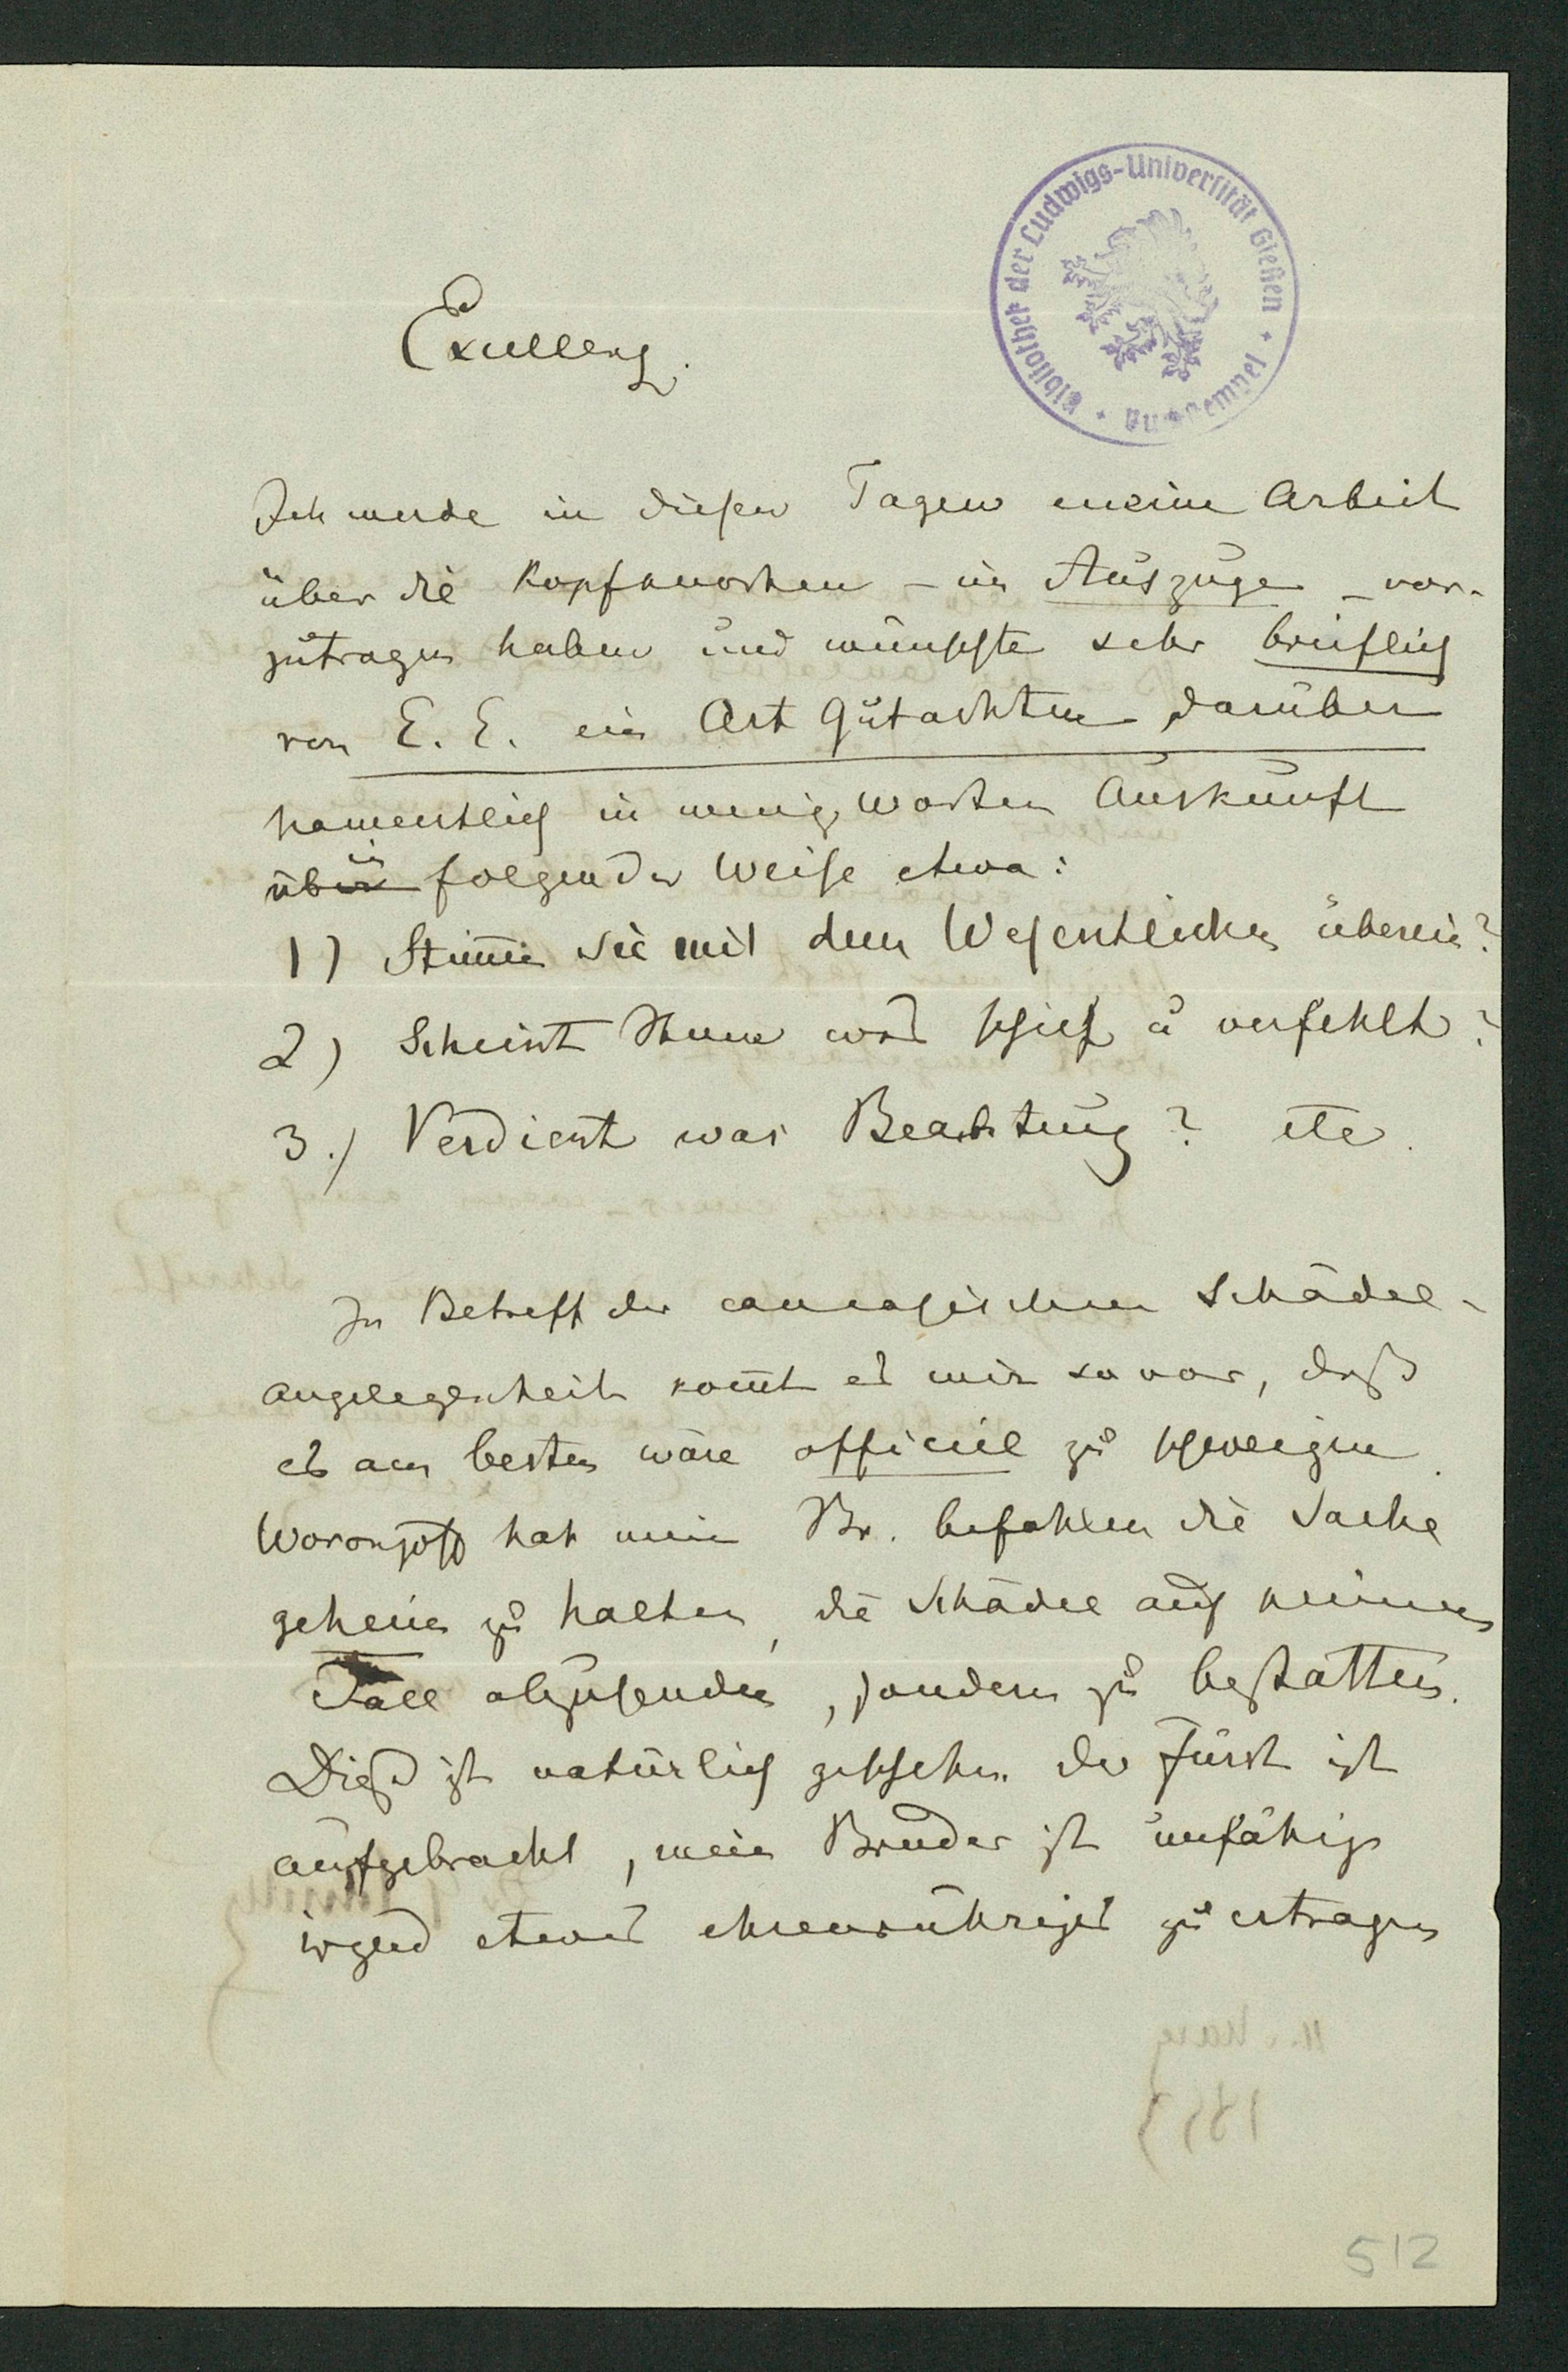 Bibliothek der Ludwigs-Universität Gießen
Excellenz.
Ich werde in diesen Tagen meine Arbeit
über die Kopfknochen - im Auszuge - vor-
zutragen haben und wünschte sehr brieflich
von E. E. ein Art Gutachten darüber
namentlich in wenig Worten Auskunft
über in folgender Weise etwa:
1) Stimen Sie mit dem Wesentlichen überein?
2) Scheint Ihnen was schief u verfehlt?
3.) Verdient was Beachtung? etc.
In Betreff der caucasischen Schädel-
angelegenheit komt es mir so vor, daß
es am besten wäre officiel zu schweigen.
Woronzoff hat mein Br. befohlen die Sache
geheim zu halten, die Schädel auf keinen
Fall abzusenden, sondern zu bestatten.
Dieß ist natürlich geschehen der Fürst ist
aufgebracht, mein Bruder ist unfähig
irgend etwas ehrenrühriges zu ertragen
512